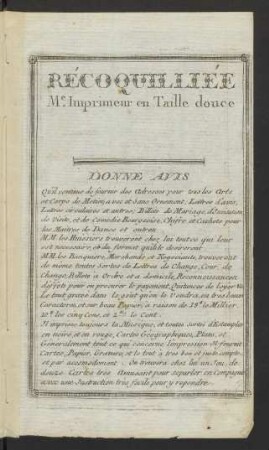 RÉCOQUILLIÉE
Me. Imprimeur en Taille douce
DONNE AVIS
Qu'il continue de fournir des Adresses pour tous les Arts
et Corps de Metier, avec et sans Ornement, Lettres d'avis,
Lettres circulaires et autres; Billets de Mariage, d'Invitation
de Visite, et de Comedie Bourgeoise, Chifre et Cachets pour
les Maitres de Danse et autres
M.M. les Huissiers trouveront chez lui toutes qui leur
est necessaire, et de format qu'ils desireront
MM. les Banquiers, Marchands, et Negociants, trouveront
de même toutes Sortes de Lettres de Change, Cour. de
Change, Billets à Ordre et à domicile, Reconnoissances
d'effets pour en procurer le payement, Quittances de loyer &c.
Le tout gravé dans le gout
Caracteres, et sur beau Papier, à raison de 18tt le Millier
10tt les cinq Cens, et 2tt le Cent.
Il imprime toujours la Musique, et toutes sortes d'Estampes
en noir, et en rouge, Cartes Géographiques, Plans, et
Généralement tout ce qui concerne l'impression. Il fournit
Cartes, Papier, Gravure, et le tout à très bon et juste compte,
et par accomodement. On trouvera chez lui un Jeu de
douze Cartes très Amusant pour separler en Compagnie
avec une Instruction très facile pour y repondre.